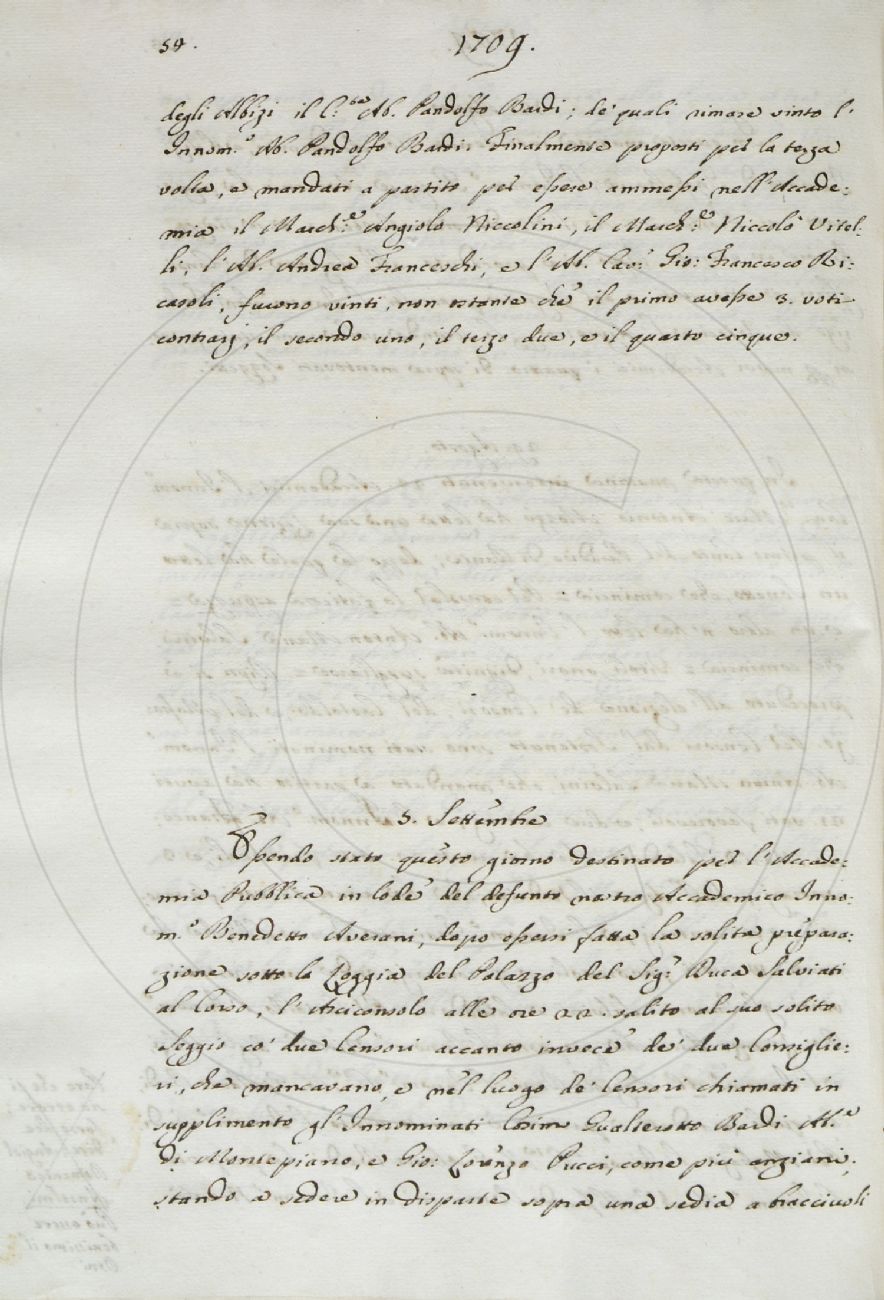 54.
1709.
degli Albizi il C.te Ab. Pandolfo Bardi; de' quali rimase vinto l'
Innom.o Ab. Pandolfo Bardi. Finalmente proposti per la terza
volta, e mandati a partito per essere ammessi nell'Accade:
mia il March.e Angiolo Niccolini, il March.e Niccolò Vitel-
li, l'Ab. Andrea Franceschi, e l'Ab. Cav.r Gio: Francesco Ri:
casoli, furono vinti, non ostante che il primo avesse 3. voti
contrarj, il secondo uno, il terzo due, e il quarto cinque.
5. Settembre
Essendo stato questo giorno destinato per l'Accade:
mia Pubblica in lode del defunto nostro Accademico Inno:
m.o Benedetto Averani, dopo essersi fatta la solita prepara:
zione sotto la Loggia del Palazzo del Sig.r Duca Salviati
al Corso, l'Arciconsolo alle ore 22. salito al suo solito
Seggio co' due Censori accanto invece de' due Consiglie:
ri, che mancavano, e nel luogo de' Censori chiamati in
supplimento gl'Innominati Cosimo Gualterotto Bardi Ab.e
di Montepiano, e Gio: Lorenzo Pucci, come più anziani;
stando a sedere in disparte sopra una sedia a bracciuoli